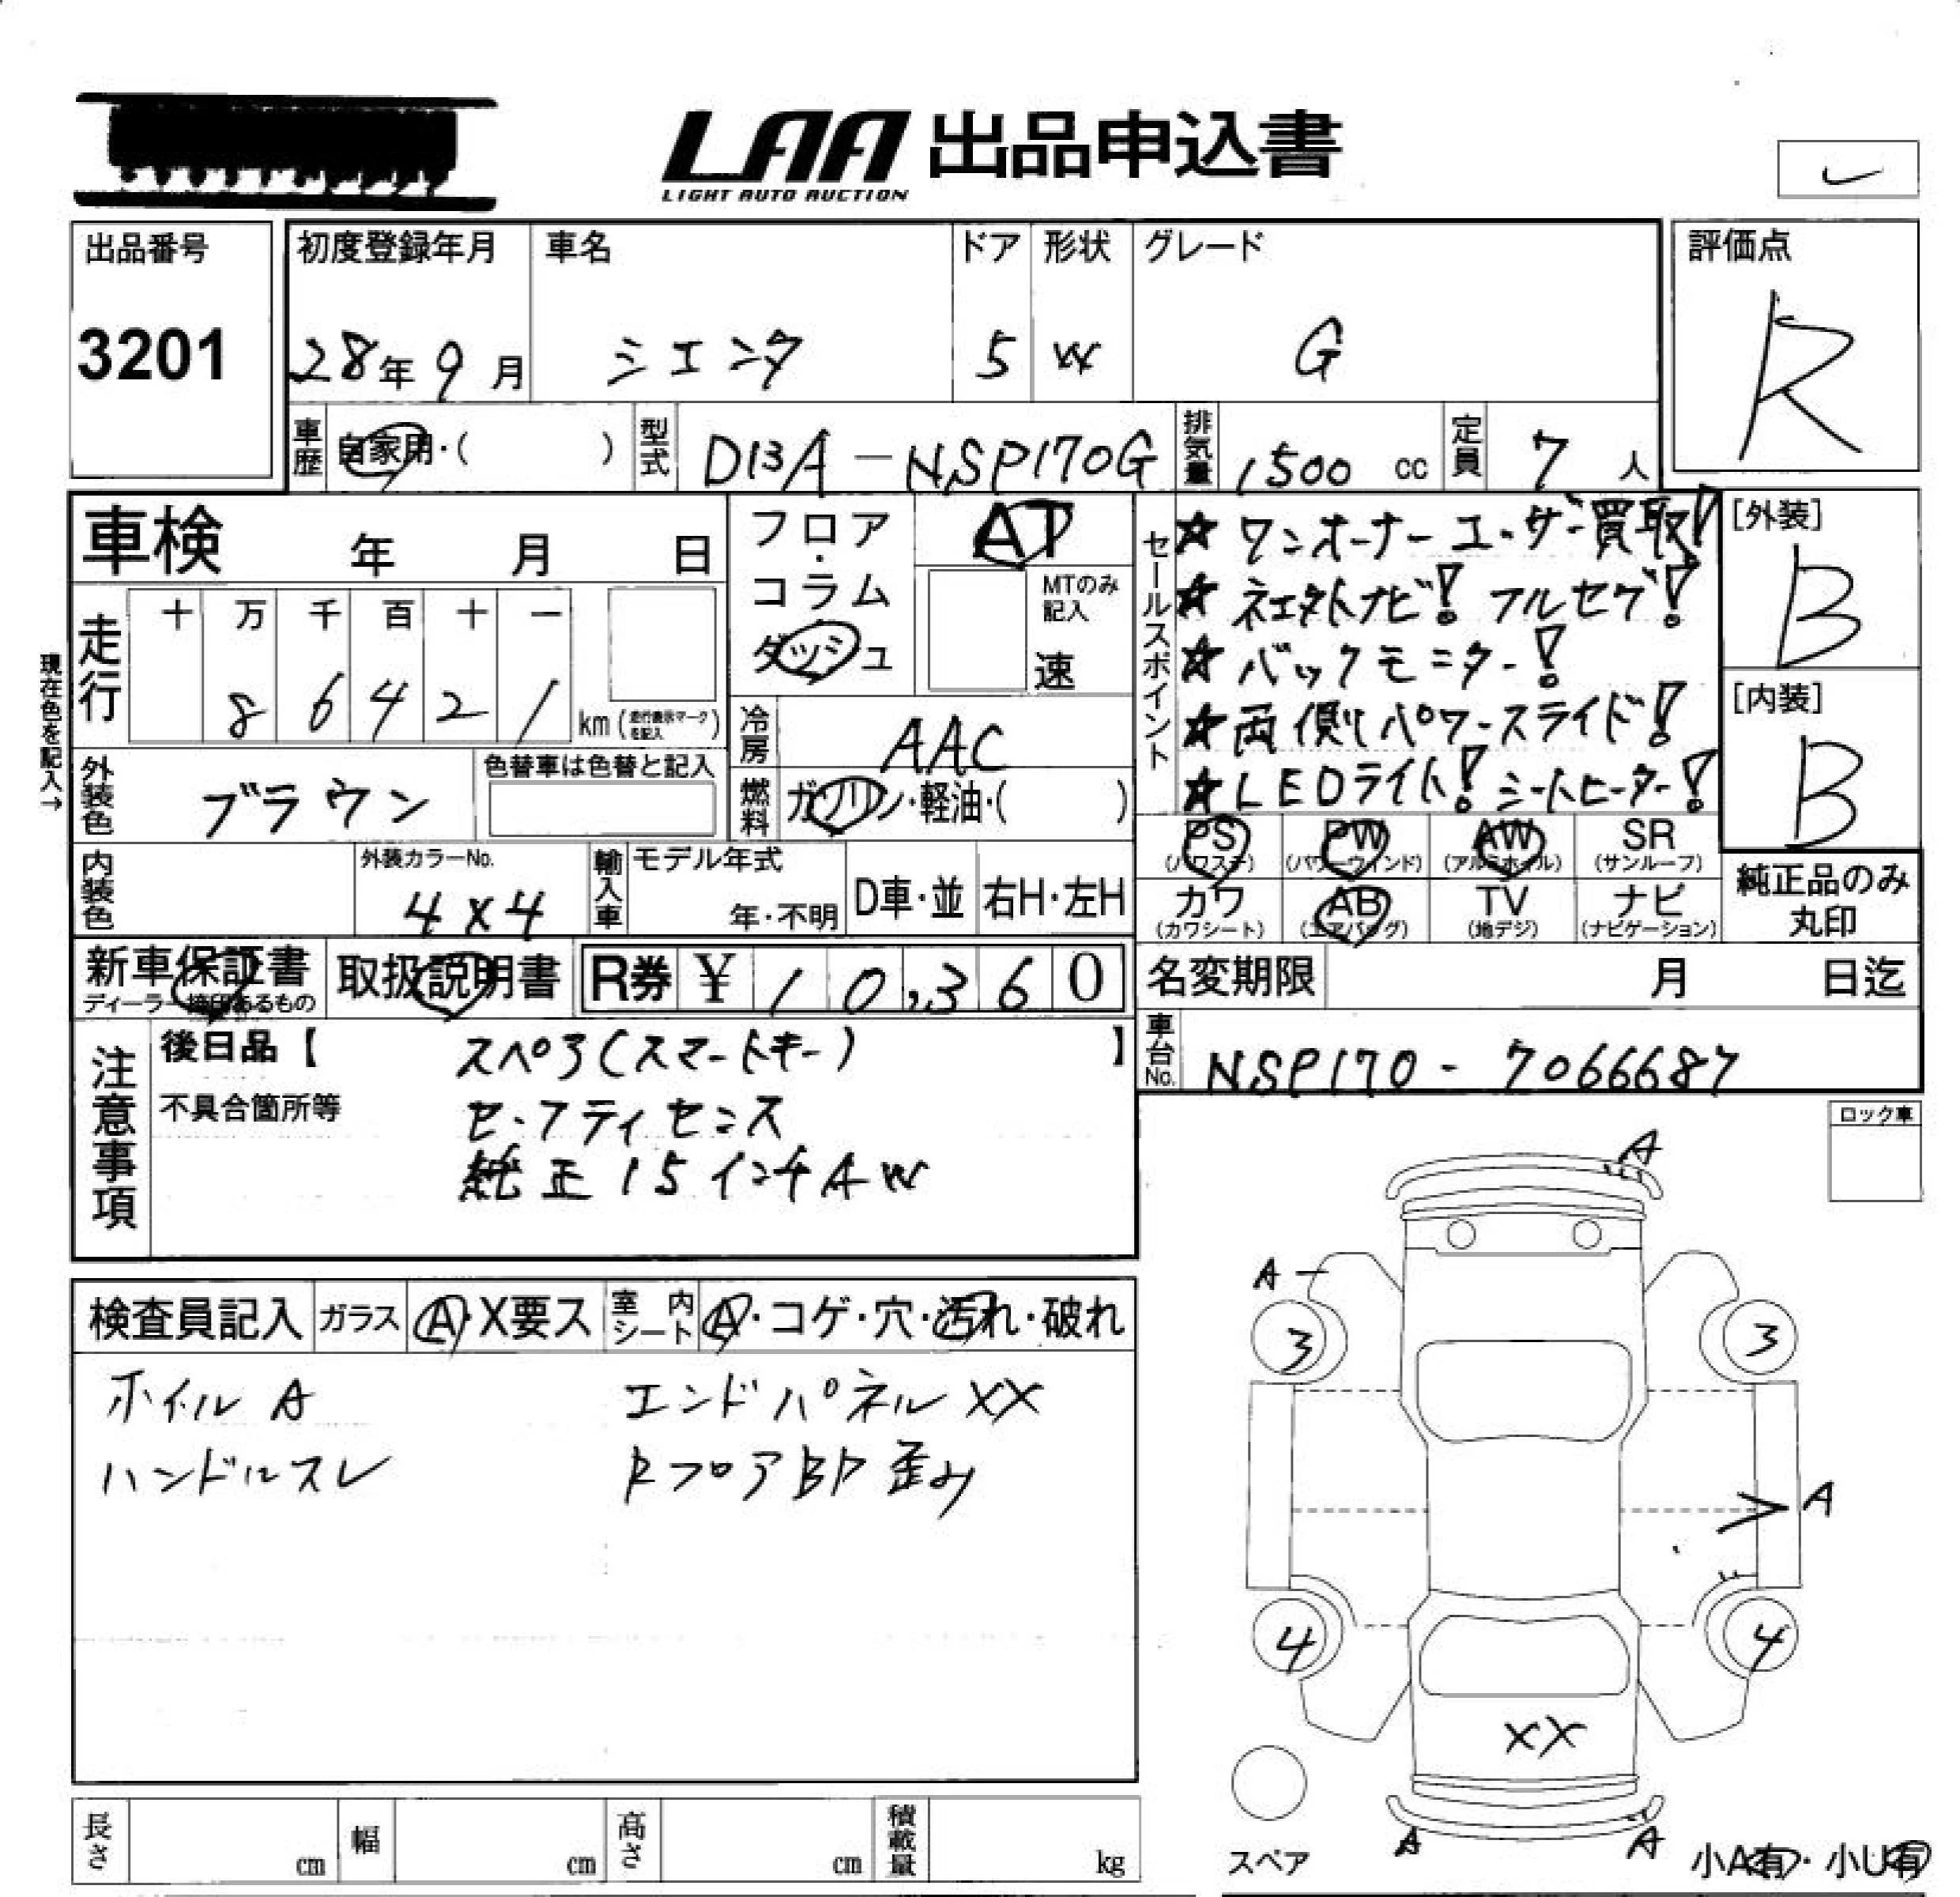 LAA 出品申込書
LIGHT AUTO AUCTION
出品番号
3201
初度登録年月 車名 ドア 形状 グレード
28年9月 シエンタ 5 W G
評価点
R
車歴 自家用・( ) 型式 DBA-NSP170G 排気量 1500 cc 定員 7 人
車検 年 月 日
フロア・コラム・ダッシュ
AT
MTのみ記入
速
セールスポイント
☆ワンオーナーユーザー買取!
☆ネクストナビ! フルセグ!
☆バックモニター!
☆両側パワースライド!
☆LEDライト! シートヒーター!
[外装]
B
[内装]
B
現在色を記入→
走行 十 万 千 百 十 一
8 6 4 2 1 km (走行表示マークを記入)
冷房 AAC
外装色 ブラウン 色替車は色替と記入
燃料 ガソリン・軽油・( )
PS (パワステ) PW (パワーウィンド) AW (アルミホイル) SR (サンルーフ)
カワ (カワシート) AB (エアバッグ) TV (地デジ) ナビ (ナビゲーション)
純正品のみ丸印
内装色 外装カラーNo. 4X4 輸入車 モデル年式 年・不明 D車・並 右H・左H
新車保証書 取扱説明書 R券 ¥ 10,360
ディーラー捺印あるもの
名変期限 月 日迄
車台No. NSP170-7066687
注意事項
後日品【 スペ3(スマートキー) 】
不具合箇所等 セーフティセンス
純正15インチAW
ロック車
検査員記入 ガラス A・X要ス 室内シート A・コゲ・穴・汚れ・破れ
ホイルA エンドパネルXX
ハンドルスレ RフロアBP歪み
A
A
3 3
A
4 4
XX
A A
スペア
小A有・小U有
長さ cm 幅 cm 高さ cm 積載量 kg